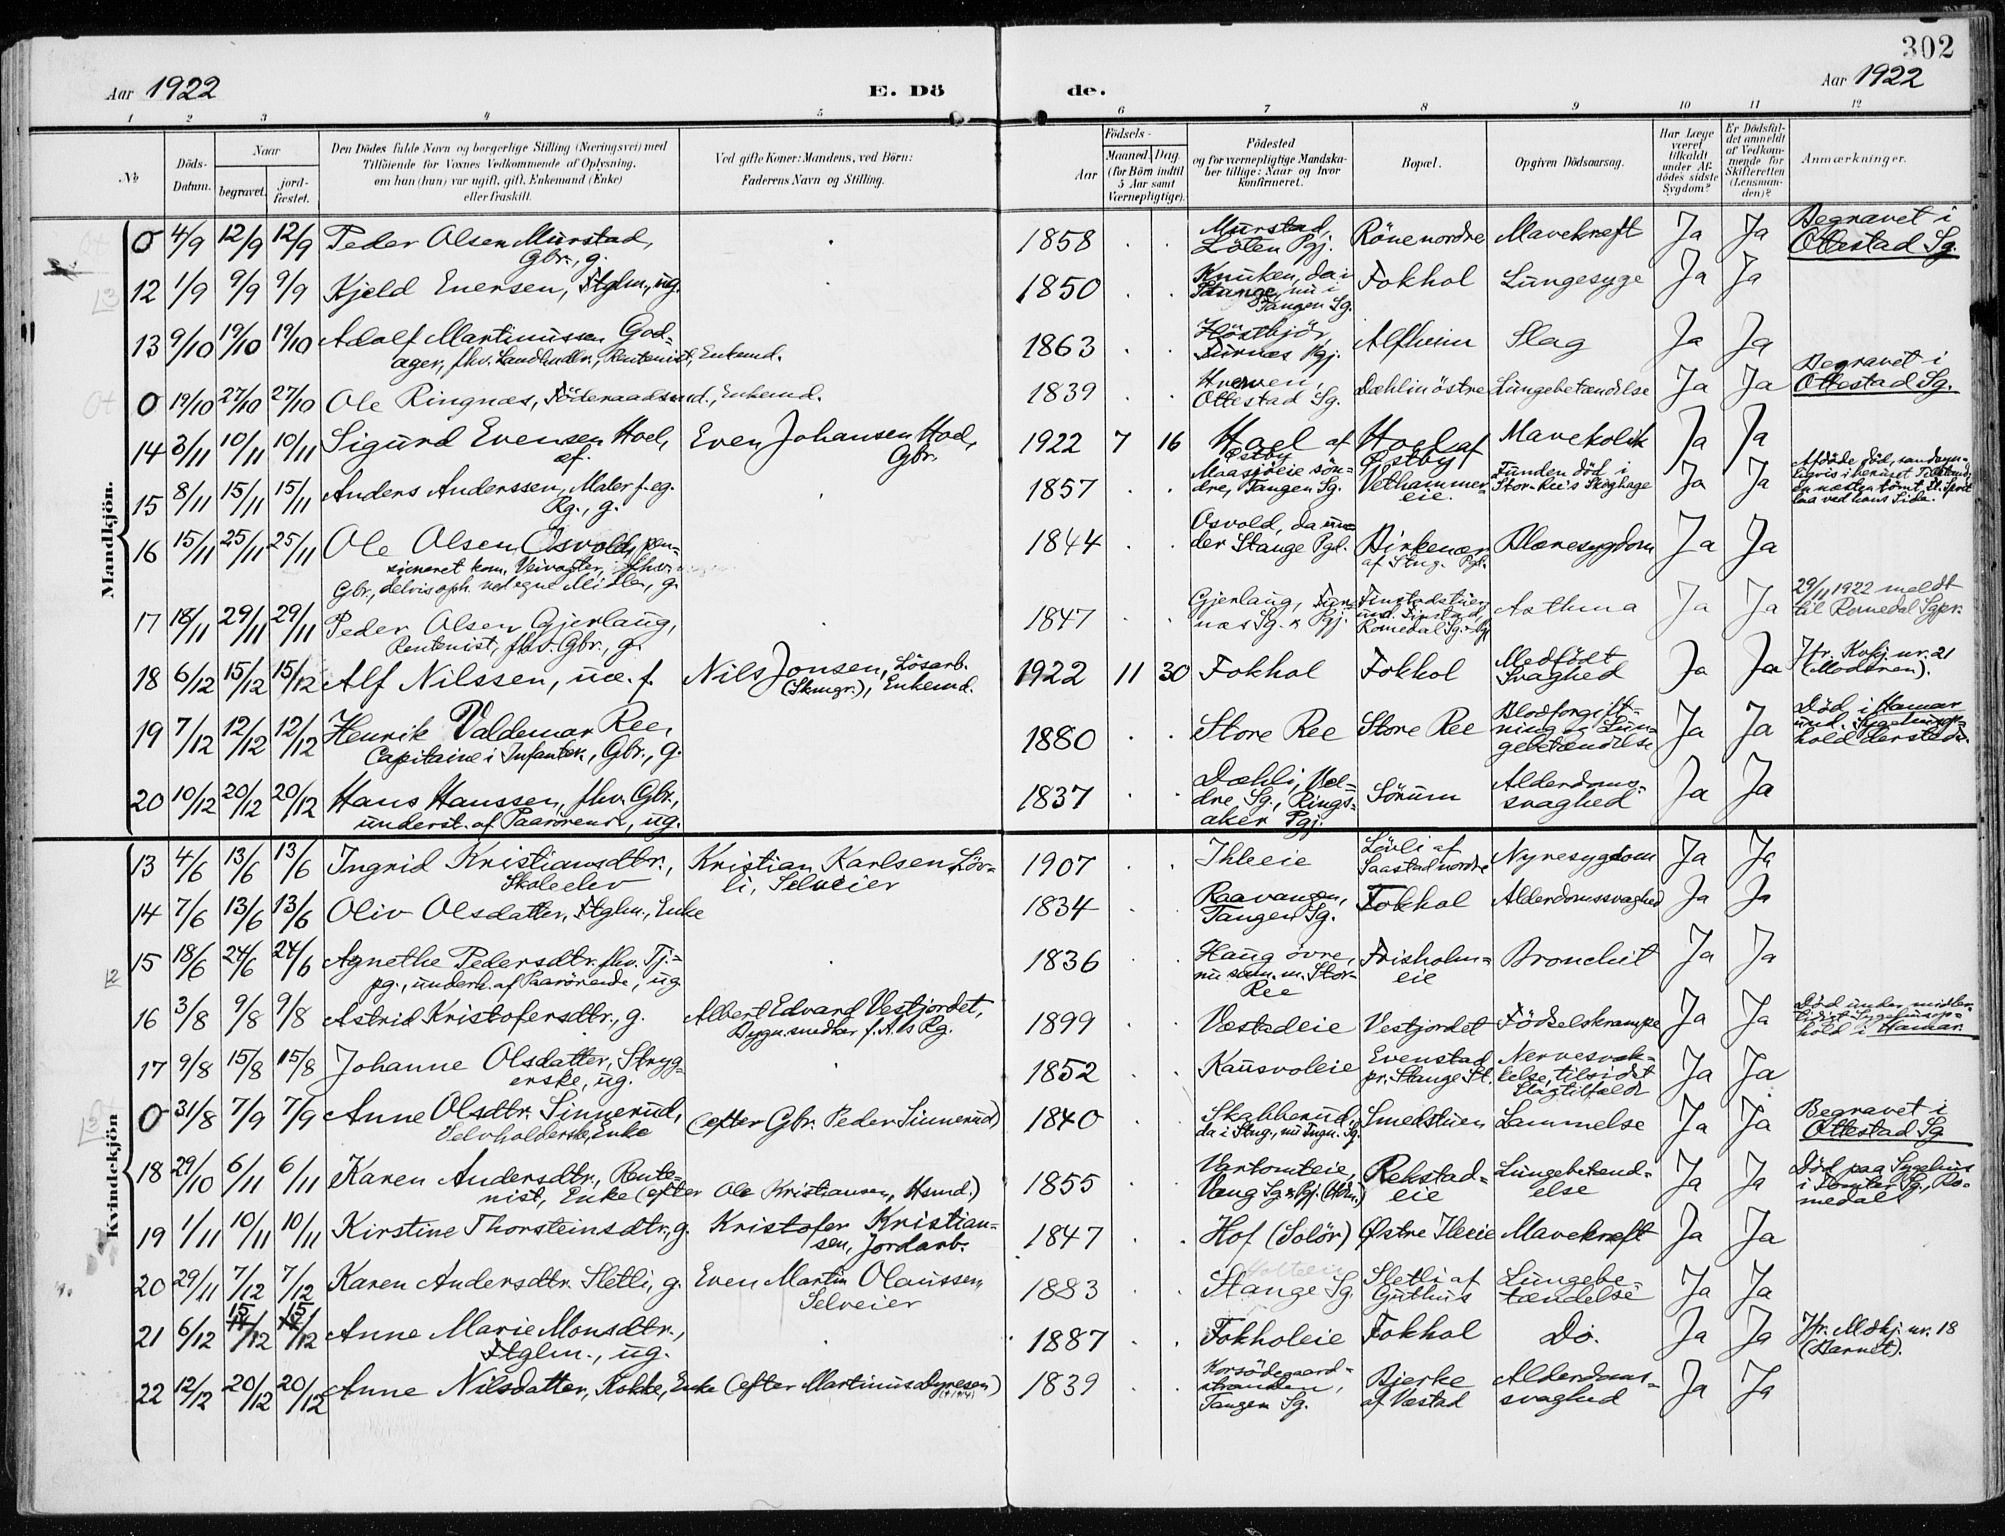 302
Aar 1922
E. Dö
de.
Aar 1922
1 2 3 4 5 6 7 8 9 10 11 12
№
Döds-
Datum.
Naar
begravet.
jord-
fæstet.
Den Dödes fulde Navn og borgerlige Stilling (Næringsvei) med
Tilföiende for Voxnes Vedkommende af Oplysning,
om han (hun) var ugift, gift, Enkemand (Enke)
eller fraskilt.
Ved gifte Koner: Mandens, ved Börn:
Faderens Navn og Stilling.
Födsels-
Aar
Maaned. Dag.
(for Börn indtil
5 Aar samt
Værnepligtige).
Födested
og for værnepligtige Mandska-
ber tillige: Naar og hvor
konfirmeret.
Bopæl.
Opgiven Dödsaarsag.
Har Læge
været
tilkaldt
under Af-
dödes sidste
Sygdom?
Er Dödsfal-
det anmeldt
af Vedkom-
mende for
Skifteretten
(Lensman-
den)?
Anmærkninger.
Mandkjön.
0 4/9 12/9 12/9 Peder Olsen Murstad,
Gbr., g.
1858 Murstad,
Löten Pgj. Röne nordre Mavekræft Ja Ja Begravet i
Ottestad Sg.
12 1/9 9/9 9/9 Kjeld Enersen, Ftglm., ug.
1850 Knuken, da i
Stange, nu i
Tangen Sg. Fokhol Lungesyge Ja Ja
13 9/10 19/10 19/10 Adolf Martinussen God-
ager, fhv. Landhdlr., Rentenist, Enkmd.
1863 Höstbjör,
Furnæs Pgj. Alfheim Slag Ja Ja
0 19/10 27/10 27/10 Ole Ringnæs, Föderaadsmd., Enkemd.
1839 Hverven,
Ottestad Sg. Dæhlin östre Lungebetændelse Ja Ja Begravet i
Ottestad Sg.
14 3/11 10/11 10/11 Sigurd Evensen Hoel, Even Johansen Hoel,
af. Gbr.
1922 7 16 Hoel af
Østby Hoel af
Østby Mavekolik Ja Ja
15 8/11 15/11 15/11 Anders Anderssen, Maler f. eg.
Rg., g.
1857 Maasjöeie sön-
dre, Tangen Sg. Vethammer-
eie. Funden död i
Stor-Ree's Skoghage Ja Ja
laa ved hans Side.
16 15/11 25/11 25/11 Ole Olsen Osvold, pen-
sioneret kom. Veivogter, fhv.
Gbr., delvis oph. ved egne Midler, g.
1844 Osvold, da un-
der Stange Pgl. Birkenær
af Stng. Pgl. Blæresygdom Ja Ja
17 18/11 29/11 29/11 Peder Olsen Gjerlaug,
Rentenist, fhv. Gbr., g.
1847 Gjerlaug, Fur-
næs Sg. & Pgj. Finstadstuen
und. Finstad,
Romedal Sg. & Pgj. Asthma Ja Ja 29/11 1922 meldt
til Romedal Sgpr.
18 6/12 15/12 15/12 Alf Nilssen, uæ. f. Nils Jonsen, Lösarb.
(Skmgr.), Enkemd.
1922 11 30 Fokhol Fokhol Medfödt
Svaghed Ja Ja Jfr. Kvkj. nr. 21
(Moderen).
19 7/12 12/12 12/12 Henrik Valdemar Ree,
Capitaine i Infanter., Gbr., g.
1880 Store Ree Store Ree Blodforgift-
ning og Lun-
gebetændelse Ja Ja Död i Hamar
und. Sygehusop-
hold dersteds.
20 10/12 20/12 20/12 Hans Hanssen, fhv. Gbr.,
underst. af Paarörende, ug.
1837 Dæhli, Vel-
dre Sg., Rings-
aker Pgj. Sörum Alderdoms-
svaghed Ja Ja
Kvindekjön
13 4/6 13/6 13/6 Ingrid Kristiansdtr., Kristian Karlsen Löv-
Skoleelev li, Selveier
1907 Ihleeie Lövli af
Saastad nordre Nyresygdom Ja Ja
14 7/6 13/6 13/6 Oliv Olsdatter, Ftglm., Enke
1834 Raavangen,
Tangen Sg. Fokhol Alderdomssvaghed Ja Ja
15 18/6 24/6 24/6 Agnethe Pedersdtr. fhv. Tj.-
pg., underh. af Paarörende, ug
1836 Haug övre,
nu sam. m. Stor-
Ree Frisholm-
eie Bronchit Ja Ja
16 3/8 9/8 9/8 Astrid Kristofersdtr., g. Albert Edvard Vestjordet,
Bygn.snedker f. A. b. Rg.
1899 Væstadeie Vestjordet Födselskrampe Ja Ja Död under midler-
tidigt Sygehusop-
hold i Hamar.
17 9/8 15/8 15/8 Johanne Olsdatter, Stryg-
erske, ug.
1852 Kausvoleie Evenstad
pr. Stange St. Nervesvæk-
kelse, tilsidst
Slagtilfælde Ja Ja
0 31/8 7/9 7/9 Anne Olsdtr. Sinnerud, (efter Gbr. Peder Sinnerud)
Selvholderske, Enke
1840 Skabberud,
da i Stng., nu Tngn. Sg. Smedstuen Lammelse Ja Ja Begravet i
Ottestad Sg
18 29/10 6/11 6/11 Karen Andersdtr., Rente-
nist, Enke (efter Ole Kristiansen, Hsmd.)
1855 Vartomteie,
Vang Sg. & Pgj. (Hdm.) Rekstad-
eie Lungebetænd-
else Ja Ja Död paa Sygehus
i Tomter Sg., Ro-
medal
19 1/11 10/11 10/11 Kirstine Thorsteinsdtr., g. Kristofer Kristian-
sen, Jordarb.
1847 Hof (Solör) Østre Ileeie Mavekræft Ja Ja
20 29/11 7/12 7/12 Karen Andersdtr. Sletli, g. Even Martin Olaussen,
Selveier
1883 Stange Sg. Sletli af
Guthus Lungebe-
tændelse Ja Ja
21 6/12 15/12 15/12 Anne Marie Monsdtr.,
Ftglm., ug.
1887 Fokholeie Fokhol Do. Ja Ja Jfr. Mdkj. nr. 18
(Barnet).
22 12/12 20/12 20/12 Anne Nilsdatter, Kokke, Enke (efter Martinus Dyresen)
1839 Korsödegaard-
stranden,
Tangen Sg. Bjerke
af Væstad Alderdoms-
svaghed Ja Ja